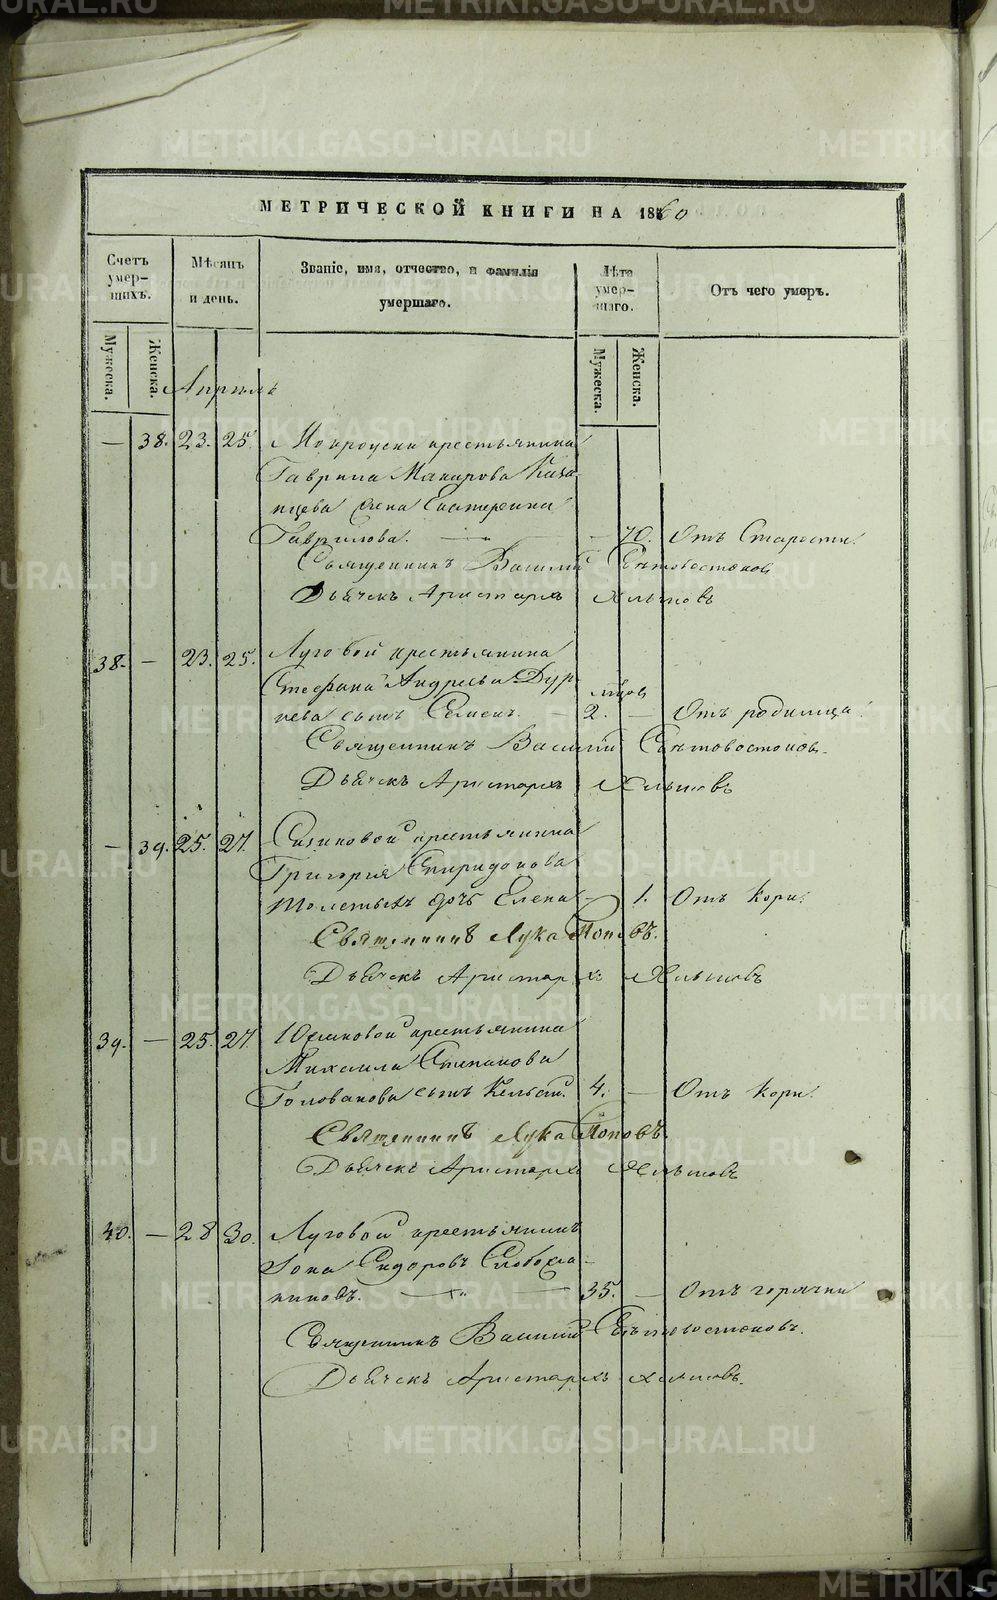 МЕТРИЧЕСКОЙ КНИГИ НА 1860
Счетъ умер- шихъ.
Мѣсяцъ и день.
Званіе, имя, отчество, и фамилія умершаго.
Лѣта умер- шаго.
Отъ чего умеръ.
Мужеска.
Женска.
Мужеска.
Женска.
Апрѣль
— 38. 23. 25. крестьянина
Гаврила Макарова Каза-
нцева жена Екатерина
Гаврилова. — 70. Отъ Старости.
Священникъ Василій Свѣтовостоковъ
Дьячекъ Аристархъ Хлыновъ
38. — 23. 25. Луговой крестьянина
Стефана Андреева Дур-
мѣсяцов
нева сынъ Семенъ. — 2. — Отъ родимца.
Священникъ Василій Свѣтовостоковъ.
Дьячекъ Аристархъ Хлыновъ
— 39. 25. 27. крестьянина
Григорія Спиридонова
Толстыхъ дочь Елена — 1. Отъ Кори.
Священникъ Лука Поповъ.
Дьячекъ Аристархъ Хлыновъ
39. — 25. 27. крестьянина
Михаила Степанова
Голованова сынъ 4. — Отъ Кори.
Священникъ Лука Поповъ.
Дьячекъ Аристархъ Хлыновъ
40. — 28 30. Луговой крестьянинъ
Іона Сидоровъ Слободча-
никовъ. — 35. — Отъ горячки
Священникъ Василій Свѣтовостоковъ.
Дьячекъ Аристархъ Хлыновъ.
METRIKI.GASO-URAL.RU